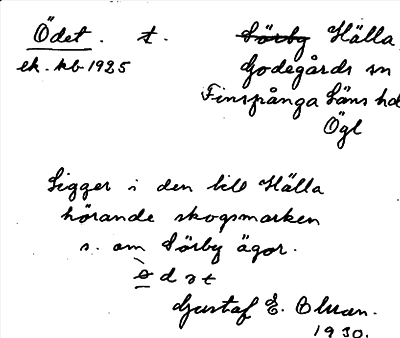 Ödet. t. Sörby Hälla
ek. kb 1925 Godegårds sn
Finspånga läns hd
Ögl
Ligger i den till Hälla
hörande skogsmarken
s. om Sörby ägor.
Gustaf E. Olsson.
1930.